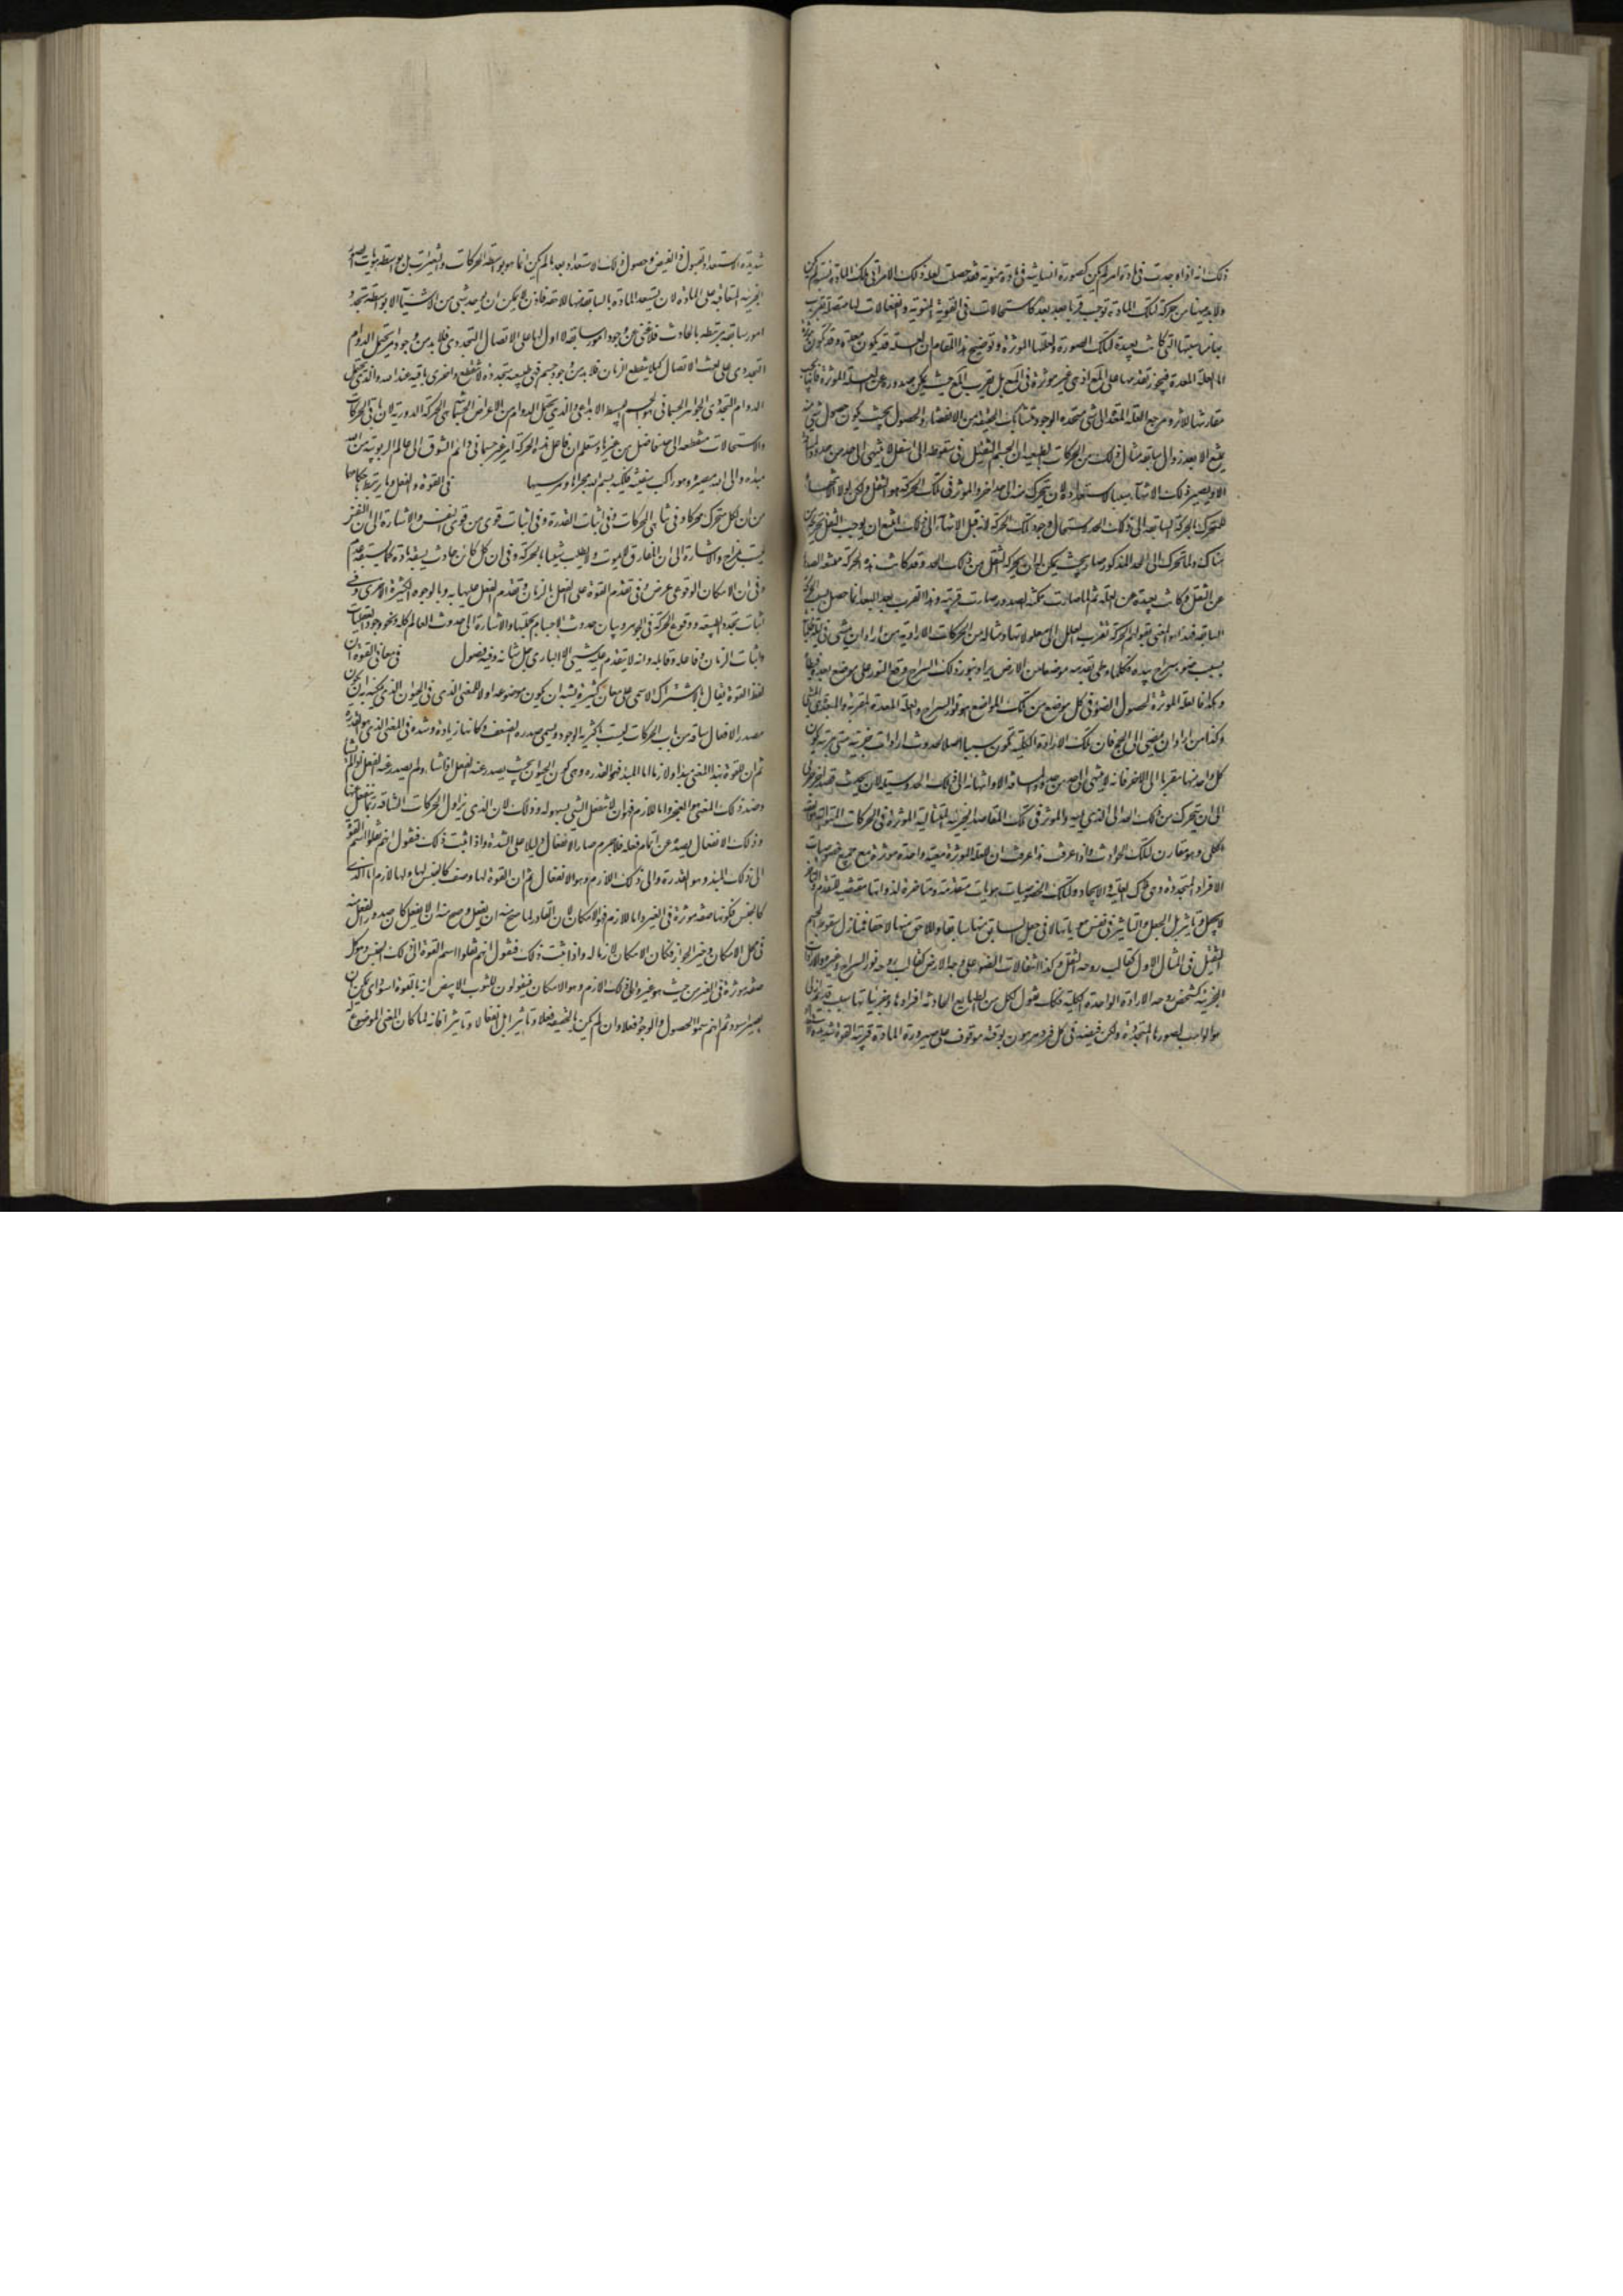 ذلك انه اذا وجدت فى مادة امر لم يكن كصورة انسانية فى مادة منوية فقد حصلت لعلة ذلك الامر الى تلك المادة نسبة لم يكن
ولا بد هيهنا من حركة لتلك المادة توجب قربا بعد بعد كاستحالات فى القوة المنوية وانفعالات لها متصلة تقرب
بها مناسبتها التى كانت بعيدة لتلك الصورة ولعلتها الموثرة وتوضيح هذا المقام ان العلة قد يكون معدة وقد تكون موثرة
اما العلة المعدة فيجوز تقدمها على المعلول اذ هى غير موثرة فى المعلول بل يقرب المعلول حيث يمكن صدوره عن العلة الموثرة فانها يجب
مقارنتها للاثر ومرجع العلة المعدة الى شى متجدد الوجود متشابك الحقيقة من الانقضاء والحصول بحيث يكون حصول شى منه
يمتنع الا بعد زوال سابقه مثال ذلك من الحركات الطبيعية ان الجسم الثقيل فى سقوطه الى اسفل لا ينتهى الى حد من حدود المسافة
الا ويصير ذلك الانتهاء سببا لاستعداده لان يتحرك منه الى حد اخر والموثر فى تلك الحركة هو الثقل ولكن لولا الانتهاء
للمتحرك بالحركة السابقة الى ذلك الحد لاستحال وجود تلك الحركة لانه قبل الانتهاء الى ذلك امتنع ان يوجب الثقل تحريكه من
هناك ولما تحرك الى الحد المذكور صار بحيث يمكن له ان يحركه الثقل من ذلك الحد وقد كانت هذه الحركة ممتنعة الصدور
عن الثقل وكانت بعيدة عن العلة ثم لما صارت ممكنة الصدور صارت قريبة وهذا القرب بعد البعد انما حصل بسبب الحركة
السابقة فهذا هو المعنى بقولهم الحركة تقرب العلل الى معلولاتها ومثاله من الحركات الارادية من اراد ان يمشى فى ليلة ظلماء
بسبب ضوء سراج بيده فكلما وطى بقدمه موضعا من الارض يراه بنور ذلك السراج وقع النور على موضع بعده فيطأه
وهكذا فالعلة الموثرة لحصول الضوء فى كل موضع من تلك المواضع هو نور السراج والعلة المعدة المقربة والمبعدة هى المشى
وكذا من اراد ان يمضى الى الحج فان تلك الارادة الكلية تكون سببا اصلا لحدوث ارادات جزئية مترتبة يكون
كل واحد منها مقربا الى الاخر فانه لا ينتهى الى حد من حدود المسافة الا وانتهائه الى ذلك الحد وسيلة لان يحدث قصد اخر جزئى
الى ان يتحرك من ذلك الحد الى الذى يليه والموثر فى تلك المقاصد الجزئية المتتالية الموثرة فى الحركات المتوالية
الكلى وهو مقارن لتلك الحوادث واذا عرفت هذا عرفت ان العلة الموثرة معية واحدة موثرة مع جميع خصوصيات
الافراد المتجددة وهى شرك العلية والايجاد ولتلك الخصوصيات هويات متقدمة ومتاخرة لذواتها مقتضية للتقدم والتاخر
لا بجعل وتاثير بل الجعل والتاثير فى نفس هوياتها لا فى جعل السابق منها سابقا واللاحق منها لاحقا فمنازل سقوط الجسم
الثقيل فى المثال الاول كقالب روحه الثقل وكذا انتقالات الضوء على وجه الارض كقالب روحه نور السراج وغيره والارادات
الجزئية كشخص روحه الارادة الواحدة الكلية فكك نقول لكل من الطبايع الحادثة افرادها وجزئياتها سبب قديم ازلى
هو الواهب لصورها المتجددة ولكن فيضه فى كل فرد مرهون بوقته موقوف على صيرورة المادة قريبة القوة شديدة
شديدة الاستعداد لقبول ذلك الفيض وحصول ذلك الاستعداد بعد ما لم يكن انما هو بواسطة الحركات والتغيرات بل بواسطة هويات الصور
الجزئية المتعاقبة على المادة لان يستعد المادة بالسابقة منها للاحقة فاذن لا يمكن ان يحدث شى من الاشياء الا بواسطة تجدد
امور سابقة مرتبطة بالحادث فلا غنى عن وجود امور سابقة لا اول لها على الاتصال التجددى فلا بد من وجود امر يحتمل الدوام
التجددى على نعت الاتصال كيلا ينقطع الزمان فلا بد من وجود جسم فيه طبيعة متجددة لا تنقطع واخرى باقية عند الله والذى يحتمل
الدوام التجددى الجواهر الجسمانى هو الجسم البسيط الابداعى والذى يحتمل الدوام من الاعراض الجسمانى الحركة الدورية لان باقى الحركات
والاستحالات منقطعة الى حد فاصل بين غيرها وستعلم ان فاعل هذه الحركة امر غير جسمانى دائم الشوق الى عالم الربوبية من الله
مبداه والى الله مصيره وهو راكب سفينة فلكية بسم الله مجراها ومرسيها فى القوة والفعل وما يرتبط باحكامهما
من ان لكل متحرك محركا وفى تناهى الحركات وفى اثبات القدرة وفى اثبات قوى من قوى النفس والاشارة الى ان النفس
ليست بمزاج والاشارة الى ان المفارق لا يموت ولا يطلب شيئا بالحركة وفى ان كل كائن حادث يسبقه مادة كما يسبقه عدم
وفى ان الامكان الوقوعى عرض وفى تقدم القوة على الفعل بالزمان وتقدم الفعل عليها به وبالوجوه الكثيرة الاخرى وفى
اثبات تجدد الطبيعة ووقوع الحركة فى الجوهر وبيان حدوث الاجسام بكليتها والاشارة الى حدوث العالم كله ونحو وجود العقليات
واثبات الزمان وفاعله وقابله وانه لا يتقدم عليه شى الا البارى جل شانه وفيه فصول فى معانى القوة ان
لفظ القوة يقال بالاشتراك الاسمى على معان كثيرة يشبه ان يكون موضوعه اولا للمعنى الذى فى الحيوان الذى يمكنه ان يكون
مصدر الافعال شاقة من باب الحركات ليست باكثرية الوجود ويسمى ضده الضعف وكانها زيادة وشدة فى المعنى الذى هو القدرة
ثم ان للقوة بهذا المعنى مبدا ولازما اما المبدا فهو القدرة وهى كون الحيوان بحيث يصدر عنه الفعل اذا شاء ولم يصدر عنه الفعل اذا لم يشا
وضد ذلك المعنى هو العجز واما اللازم فهو ان لا ينفعل الشى بسهولة وذلك لان الذى يزاول الحركات الشاقة ربما ينفعل عنها
وذلك الانفعال يصده عن اتمام فعله فلا جرم صار الانفعال دليلا على الشدة واذا ثبت ذلك فنقول انهم نقلوا اسم القوة
الى ذلك المبدا وهو القدرة والى ذلك اللازم وهو لا انفعال ثم ان القوة لها وصف كالجنس لها ولها لازم اما الذى
كالجنس فكونها صفة موثرة فى الغير واما اللازم فهو الامكان لان القادر لما صح منه ان يفعل وصح منه ان لا يفعل كان صدور الفعل منه
فى محل الامكان وحيز الجواز فكان الامكان لازما له واذا ثبت ذلك فنقول انهم نقلوا اسم القوة الى ذلك الجنس وهو كل
صفة موثرة فى الغير من حيث هو غير والى ذلك اللازم وهو الامكان فيقولون للثوب الابيض انه بالقوة اسود اى يمكن ان
يصير اسود ثم انهم سموا الحصول والوجود فعلا وان لم يكن بالحقيقة فعلا وتاثيرا بل انفعالا وتاثرا فانه لما كان المعنى الموضوع له